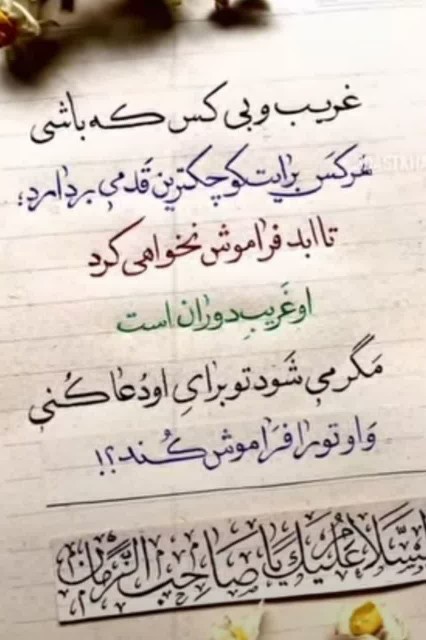 غریب و بی کس که باشی
هَرکَس برایت کوچکترین قَدمی بردارد؛
تا ابد فراموش نخواهی کرد
او غَریبِ دوران است
مَگر می شَود تو برایِ او دُعا کُنی
وَ او تو را فَراموش کُند؟!
السَّلامُ عَلَيْكَ يَا صَاحِبَ الزَّمَانِ